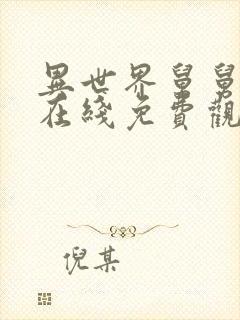 異世界舅舅
在綫免費觀
倪某